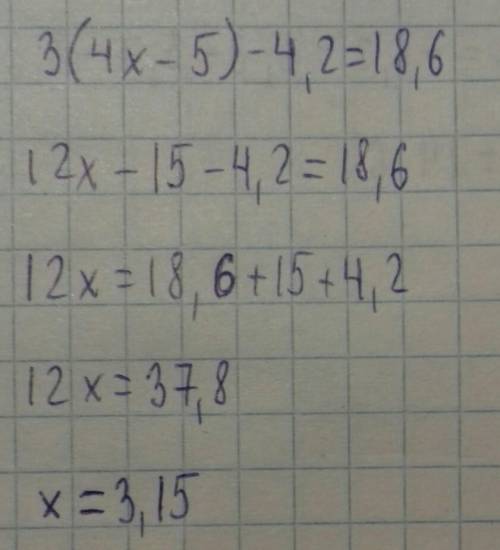 3(4x-5)-4,2=18,6
12x-15-4,2=18,6
12x=18,6+15+4,2
12x=37,8
x=3,15